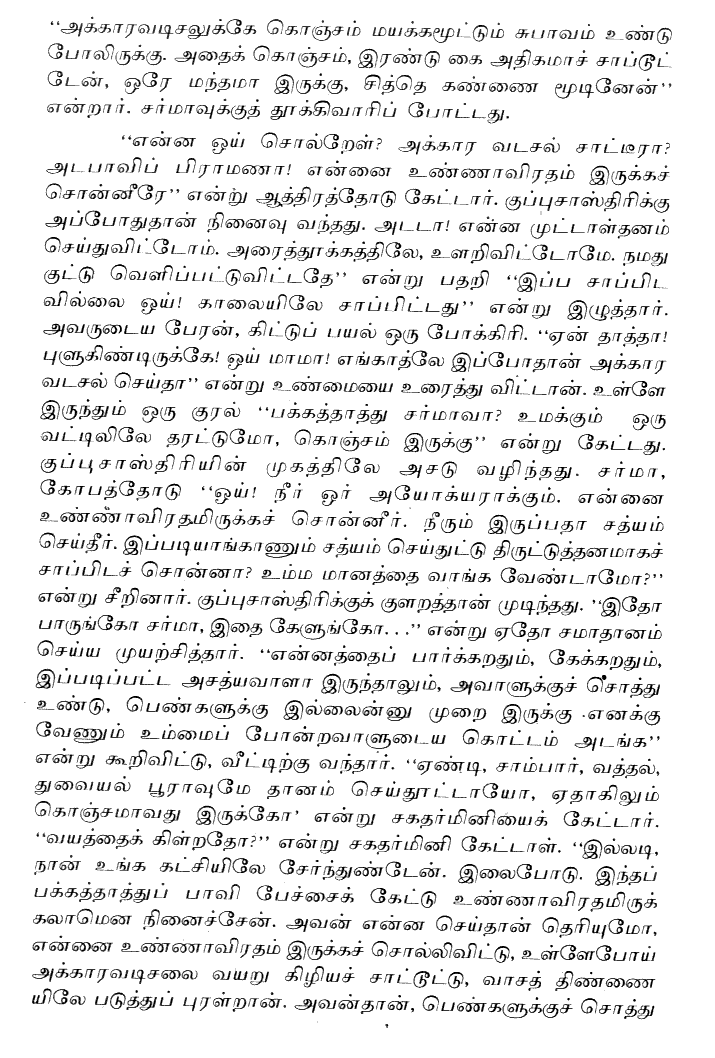 “அக்காரவடிசலுக்கே கொஞ்சம் மயக்கமூட்டும் சுபாவம் உண்டு
போலிருக்கு. அதைக் கொஞ்சம், இரண்டு கை அதிகமாச் சாப்டூட்
டேன், ஒரே மந்தமா இருக்கு, சித்தெ கண்ணை மூடினேன்”
என்றார். சர்மாவுக்குத் தூக்கிவாரிப் போட்டது.
“என்ன ஒய் சொல்றேள்? அக்கார வடசல் சாட்டீரா?
அடபாவிப் பிராமணா! என்னை உண்ணாவிரதம் இருக்கச்
சொன்னீரே” என்று ஆத்திரத்தோடு கேட்டார். குப்புசாஸ்திரிக்கு
அப்போதுதான் நினைவு வந்தது. அடடா! என்ன முட்டாள்தனம்
செய்துவிட்டோம். அரைத்தூக்கத்திலே, உளறிவிட்டோமே. நமது
குட்டு வெளிப்பட்டுவிட்டதே” என்று பதறி “இப்ப சாப்பிட
வில்லை ஒய்! காலையிலே சாப்பிட்டது” என்று இழுத்தார்.
அவருடைய பேரன், கிட்டுப் பயல் ஒரு போக்கிரி. “ஏன் தாத்தா!
புளுகிண்டிருக்கே! ஒய் மாமா! எங்காத்லே இப்போதான் அக்கார
வடசல் செய்தா” என்று உண்மையை உரைத்து விட்டான். உள்ளே
இருந்தும் ஒரு குரல் “பக்கத்தாத்து சர்மாவா? உமக்கும் ஒரு
வட்டிலிலே தரட்டுமோ, கொஞ்சம் இருக்கு” என்று கேட்டது.
குப்புசாஸ்திரியின் முகத்திலே அசடு வழிந்தது. சர்மா,
கோபத்தோடு “ஒய்! நீர் ஓர் அயோக்யராக்கும். என்னை
உண்ணாவிரதமிருக்கச் சொன்னீர். நீரும் இருப்பதா சத்யம்
செய்தீர். இப்படியாங்காணும் சத்யம் செய்துட்டு திருட்டுத்தனமாகச்
சாப்பிடச் சொன்னா? உம்ம மானத்தை வாங்க வேண்டாமோ?”
என்று சீறினார். குப்புசாஸ்திரிக்குக் குளறத்தான் முடிந்தது. “இதோ
பாருங்கோ சர்மா, இதை கேளுங்கோ...” என்று ஏதோ சமாதானம்
செய்ய முயற்சித்தார். “என்னத்தைப் பார்க்கறதும், கேக்கறதும்,
இப்படிப்பட்ட அசத்யவாளா இருந்தாலும், அவாளுக்குச் சொத்து
உண்டு, பெண்களுக்கு இல்லைன்னு முறை இருக்கு எனக்கு
வேணும் உம்மைப் போன்றவாளுடைய கொட்டம் அடங்க”
என்று கூறிவிட்டு, வீட்டிற்கு வந்தார். “ஏண்டி, சாம்பார், வத்தல்,
துவையல் பூராவுமே தானம் செய்தூட்டாயோ, ஏதாகிலும்
கொஞ்சமாவது இருக்கோ’ என்று சகதர்மினியைக் கேட்டார்.
“வயத்தைக் கிள்றதோ?” என்று சகதர்மினி கேட்டாள். “இல்லடி,
நான் உங்க கட்சியிலே சேர்ந்துண்டேன். இலைபோடு. இந்தப்
பக்கத்தாத்துப் பாவி பேச்சைக் கேட்டு உண்ணாவிரதமிருக்
கலாமென நினைச்சேன். அவன் என்ன செய்தான் தெரியுமோ,
என்னை உண்ணாவிரதம் இருக்கச் சொல்லிவிட்டு, உள்ளேபோய்
அக்காரவடிசலை வயறு கிழியச் சாட்டூட்டு, வாசத் திண்ணை
யிலே படுத்துப் புரள்றான். அவன்தான், பெண்களுக்குச் சொத்து